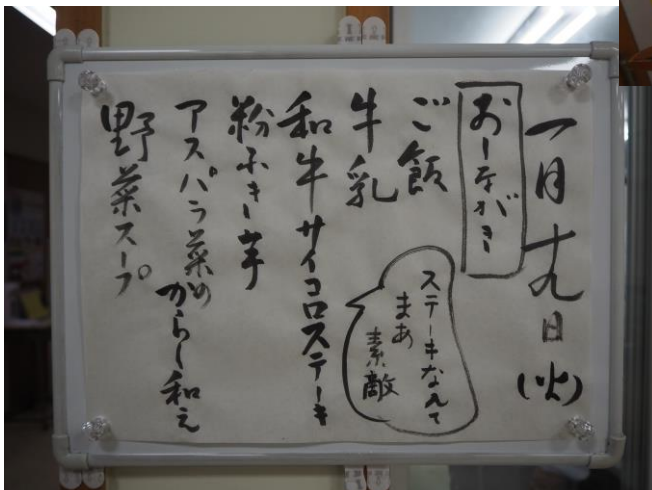 一月十九日(火)
おしながき
ご飯
牛乳
和牛サイコロステーキ
ステーキなんて
まあ
素敵
粉ふき芋
アスパラ菜の
からし和え
野菜スープ